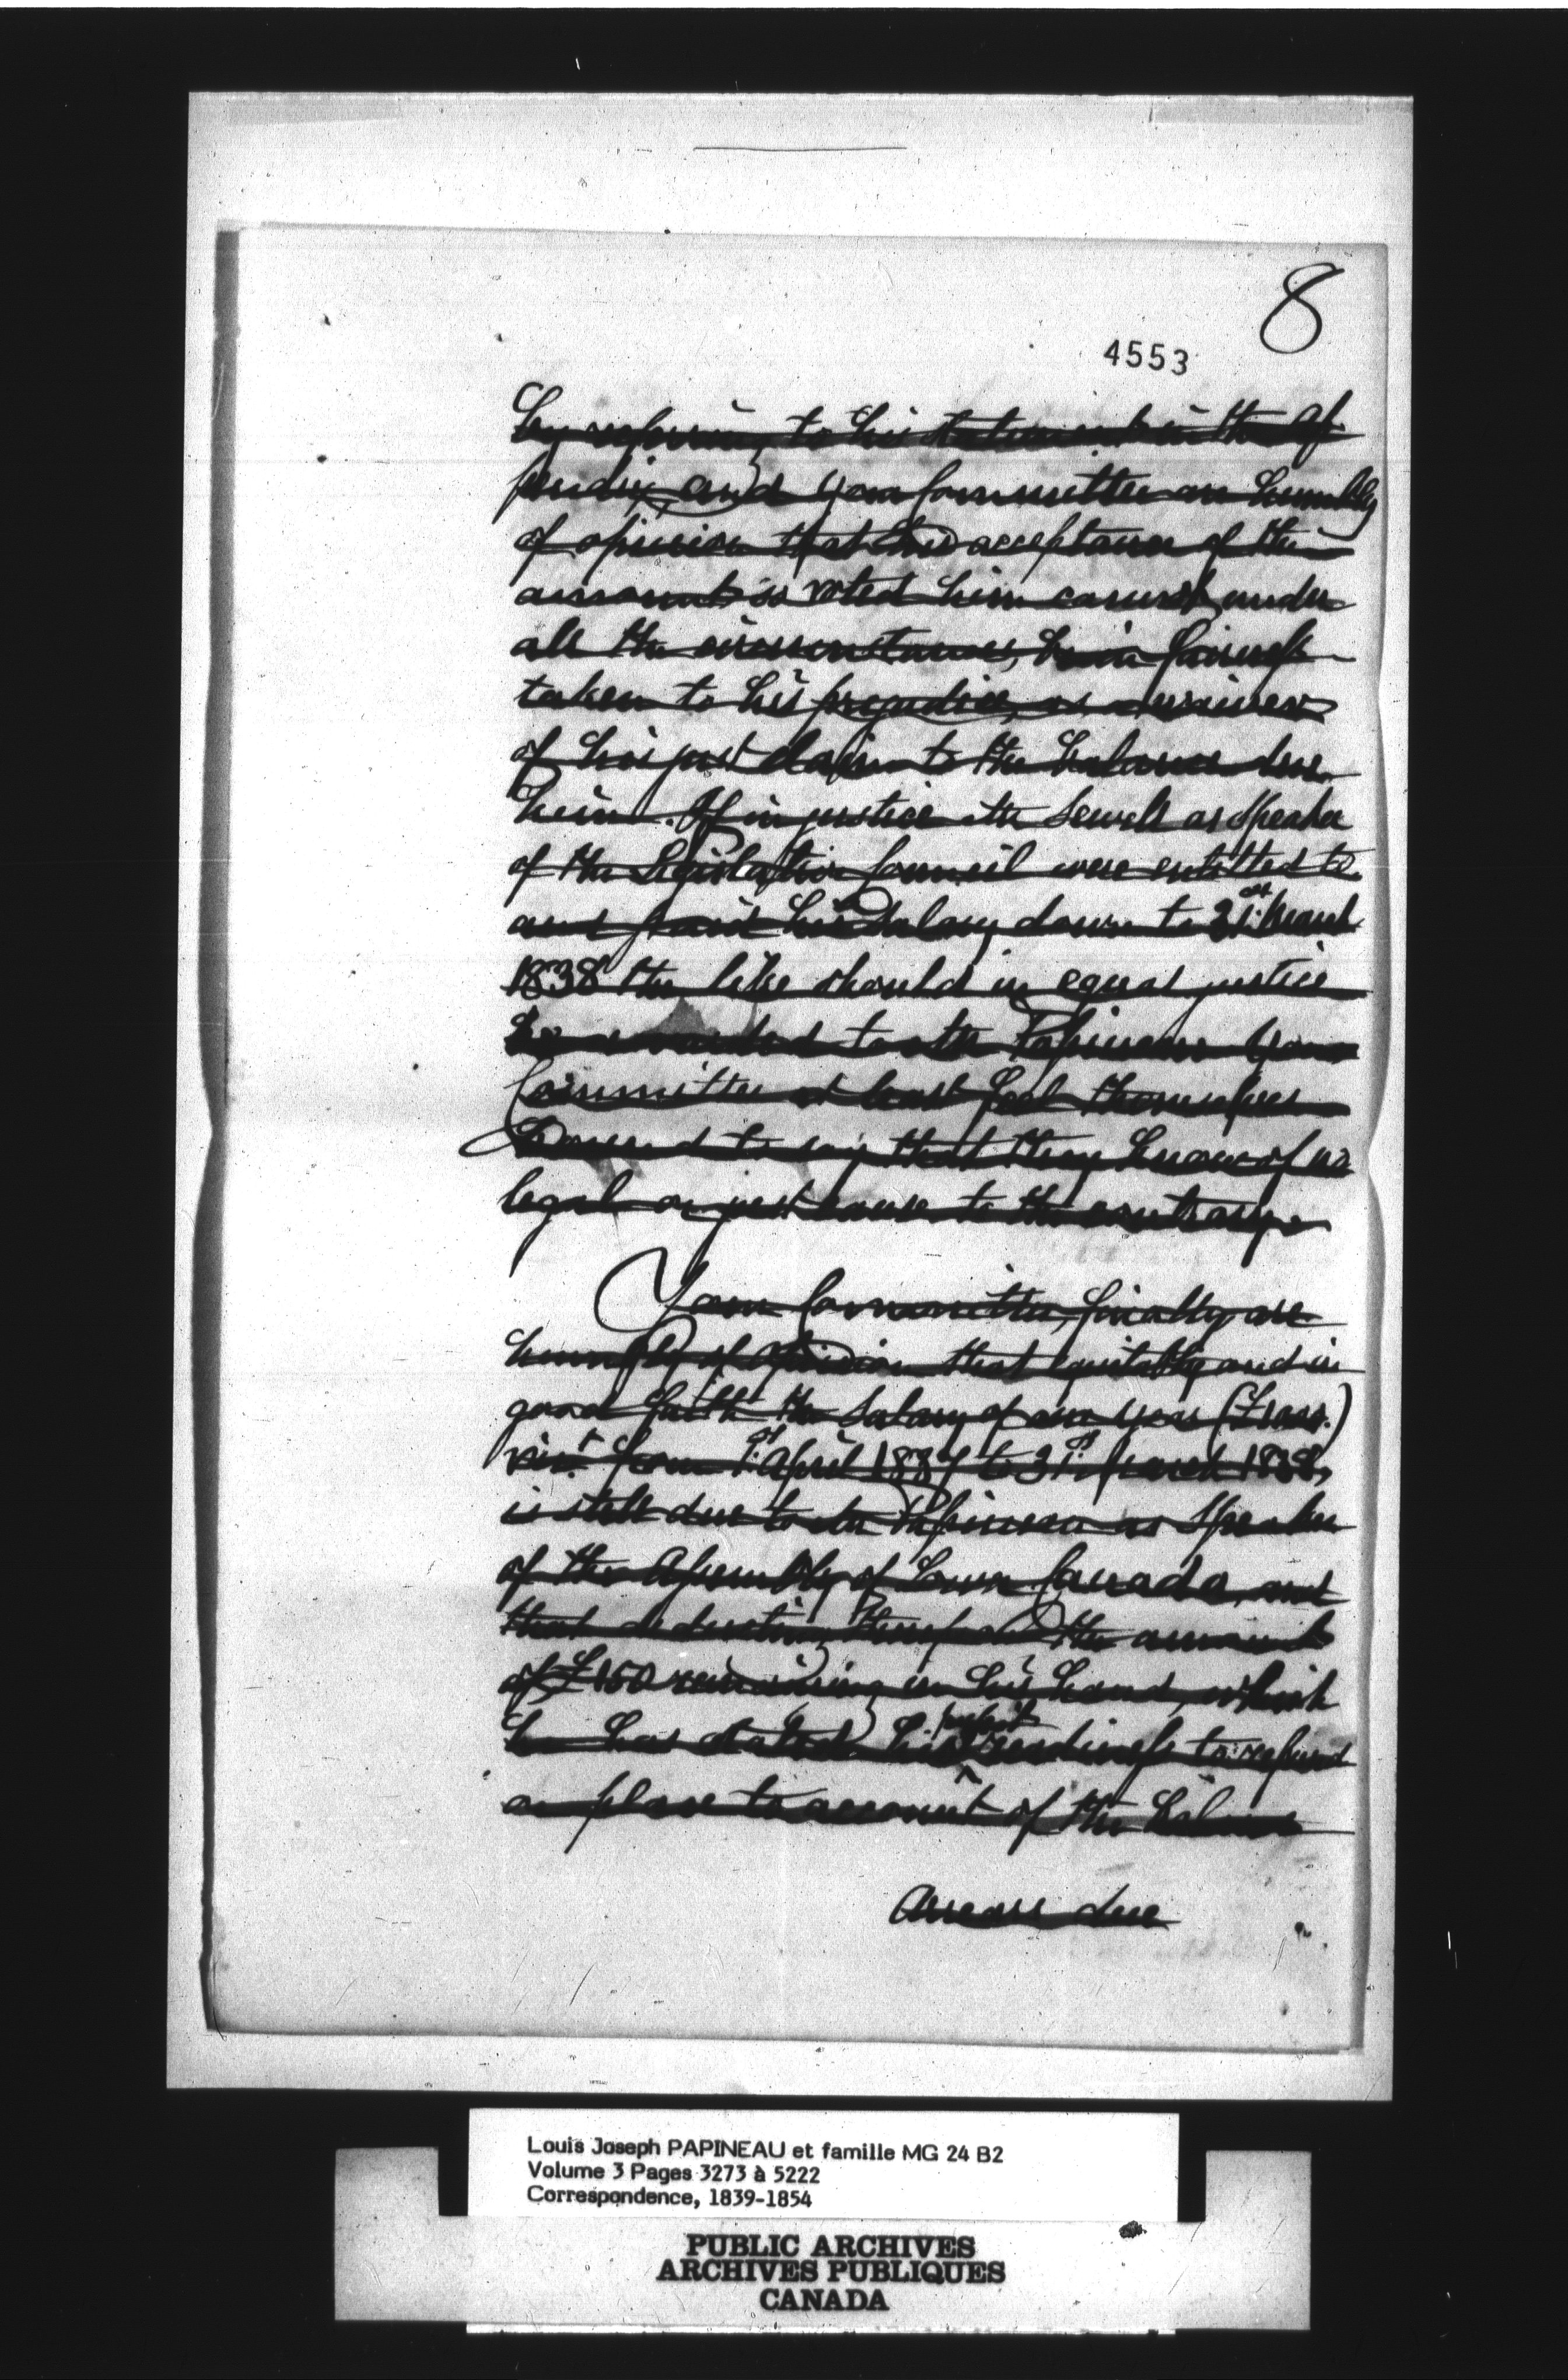 8
4553
by referring to his statement in the Ap-
pendix, and your Committee are humbly
of opinion that his acceptance of the
amount so voted him cannot, under
all the circumstances, be in fairness
taken to his prejudice, as a waiver
of his just claim to the balance due
him. If in justice Mr Sewell as Speaker
of the Legislative Council were entitled to
and paid his Salary down to 31st March
1838 the like should in equal justice
be awarded to Mr Papineau Your
Committee at least feel themselves
bound to say that they know of no
legal or just cause to the contrary.
Your Committee, finally are
humbly of opinion that equitably and in
good faith the Salary of one year (£1000.)
vizt from 1st April 1837 to 31st March 1838,
is still due to Mr Papineau as Speaker
of the Assembly of Lower Canada, and
that deducting therefrom the amount
of £ remaining in his hands, which
he has stated his readiness to refund
or place to account of the balance
Arrears due
Louis Joseph PAPINEAU et famille MG 24 B2
Volume 3 Pages 3273 à 5222
Correspondence, 1839-1854
PUBLIC ARCHIVES
ARCHIVES PUBLIQUES
CANADA